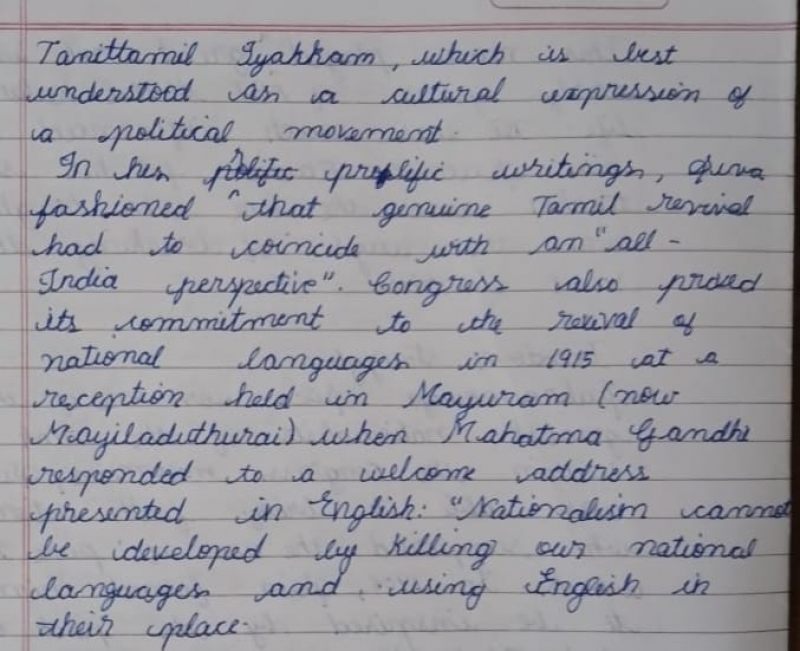 Tanittamil Iyakkam, which is best
understood as a cultural expression of
a political movement.
In her prolific writings, Guna
fashioned ^that genuine Tamil revival
had to coincide with an "all-
India perspective". Congress also proved
its commitment to the revival of
national languages in 1915 at a
reception held in Mayuram (now
Mayiladuthurai) when Mahatma Gandhi
responded to a welcome address
presented in English: "Nationalism cannot
be developed by killing our national
languages and, using English in
their place.